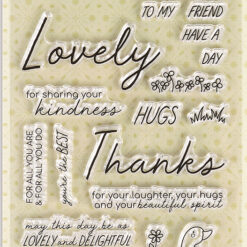 TO MY FRIEND
HAVE A
DAY
Lovely
for sharing your
kindness
HUGS
FOR ALL YOU ARE
& FOR ALL YOU DO
you're the BEST
Thanks
for your laughter, your hugs
and your beautiful spirit
may this day be as
LOVELY and DELIGHTFUL